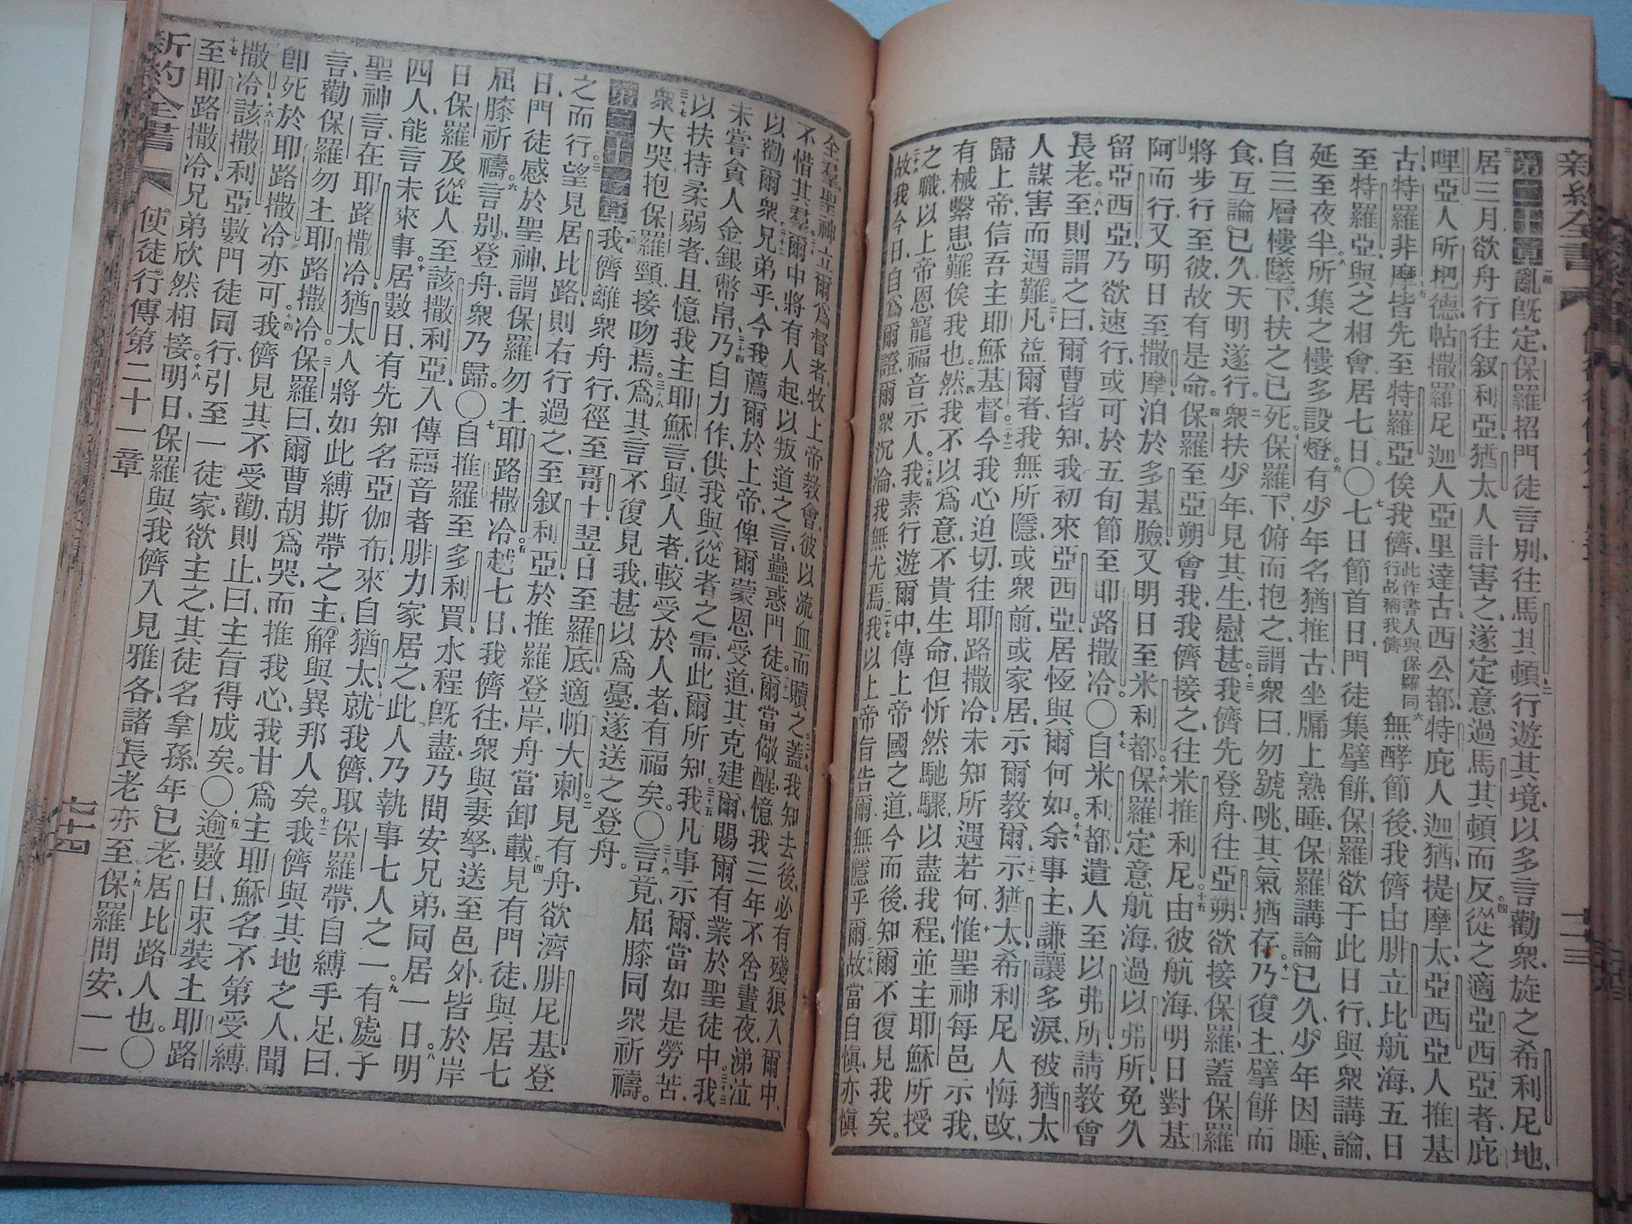 新約全書
第二十章亂旣定保羅招門徒言別往馬其頓行遊其境以多言勸衆旋之希利尼地
居三月欲舟行往叙利亞猶太人計害之遂定意過馬其頓而反從之適亞西亞者庇
哩亞人所巴德帖撒羅尼迦人亞里達古西公都特庇人迦猶提摩太亞西亞人推基
古特羅非摩皆先至特羅亞俟我儕此作書人與保羅同行故稱我儕無酵節後我儕由腓立比航海五日
至特羅亞與之相會居七日〇七日節首日門徒集擘餅保羅欲于此日行與衆講論
延至夜半所集之樓多設燈有少年名猶推古坐牖上熟睡保羅講論已久少年因睡
自三層樓墜下扶之已死保羅下俯而抱之謂衆曰勿號咷其氣猶存乃復上擘餅而
食互論已久天明遂行衆扶少年見其生慰甚我儕先登舟往亞朔欲接保羅蓋保羅
將步行至彼故有是命保羅至亞朔會我我儕接之往米推利尼由彼航海明日對基
阿而行又明日至撒摩泊於多基臉又明日至米利都保羅定意航海過以弗所免久
留亞西亞乃欲速行或可於五旬節至耶路撒冷〇自米利都遣人至以弗所請教會
長老至則謂之曰爾曹皆知我初來亞西亞居恆與爾何如余事主謙讓多淚被猶太
人謀害而遇難凡益爾者我無所隱或衆前或家居示爾教爾示猶太希利尼人悔改
歸上帝信吾主耶穌基督今我心迫切往耶路撒冷未知所遇若何惟聖神每邑示我
有械繫患難俟我也然我不以爲意不貴生命但忻然馳驟以盡我程並主耶穌所授
之職以上帝恩寵福音示人我素行遊爾中傳上帝國之道今而後知爾不復見我矣
故我今日自爲爾證爾衆沉淪我無尤焉我以上帝旨告爾無隱乎爾故當自愼亦愼
全羣聖神立爾爲督者牧上帝教會彼以流血而贖之蓋我知去後必有殘狼入爾中
不惜其羣爾中將有人起以叛道之言蠱惑門徒爾當儆醒憶我三年不舍晝夜涕泣
以勸爾衆兄弟乎今我薦爾於上帝俾爾蒙恩受道其克建爾賜爾有業於聖徒中我
未嘗貪人金銀幣帛乃自力作供我與從者之需此爾所知我凡事示爾當如是勞苦
以扶持柔弱者且憶我主耶穌言與人者較受於人者有福矣〇言竟屈膝同衆祈禱
衆大哭抱保羅頸接吻焉爲其言不復見我甚以爲憂遂送之登舟
第二十一章我儕離衆舟行徑至哥士翌日至羅底適帕大剌見有舟欲濟腓尼基登
之而行望見居比路則右行過之至叙利亞於推羅登岸舟當卸載見有門徒與居七
日門徒感於聖神謂保羅勿上耶路撒冷越七日我儕往衆與妻孥送至邑外皆於岸
屈膝祈禱言別登舟衆乃歸〇自推羅至多利買水程旣盡乃問安兄弟同居一日明
日保羅及從人至該撒利亞入傳福音者腓力家居之此人乃執事七人之一有處子
四人能言未來事居數日有先知名亞伽布來自猶太就我儕取保羅帶自縛手足曰
聖神言在耶路撒冷猶太人將如此縛斯帶之主解與異邦人矣我儕與其地之人聞
言勸保羅勿上耶路撒冷保羅曰爾曹胡爲哭而摧我心我甘爲主耶穌名不第受縛
卽死於耶路撒冷亦可我儕見其不受勸則止曰主旨得成矣〇逾數日束裝上耶路
撒冷該撒利亞數門徒同行引至一徒家欲主之其徒名拿孫年已老居比路人也〇
至耶路撒冷兄弟欣然相接明日保羅與我儕入見雅各諸長老亦至保羅問安一一
新約全書
使徒行傳第二十一章
七十四